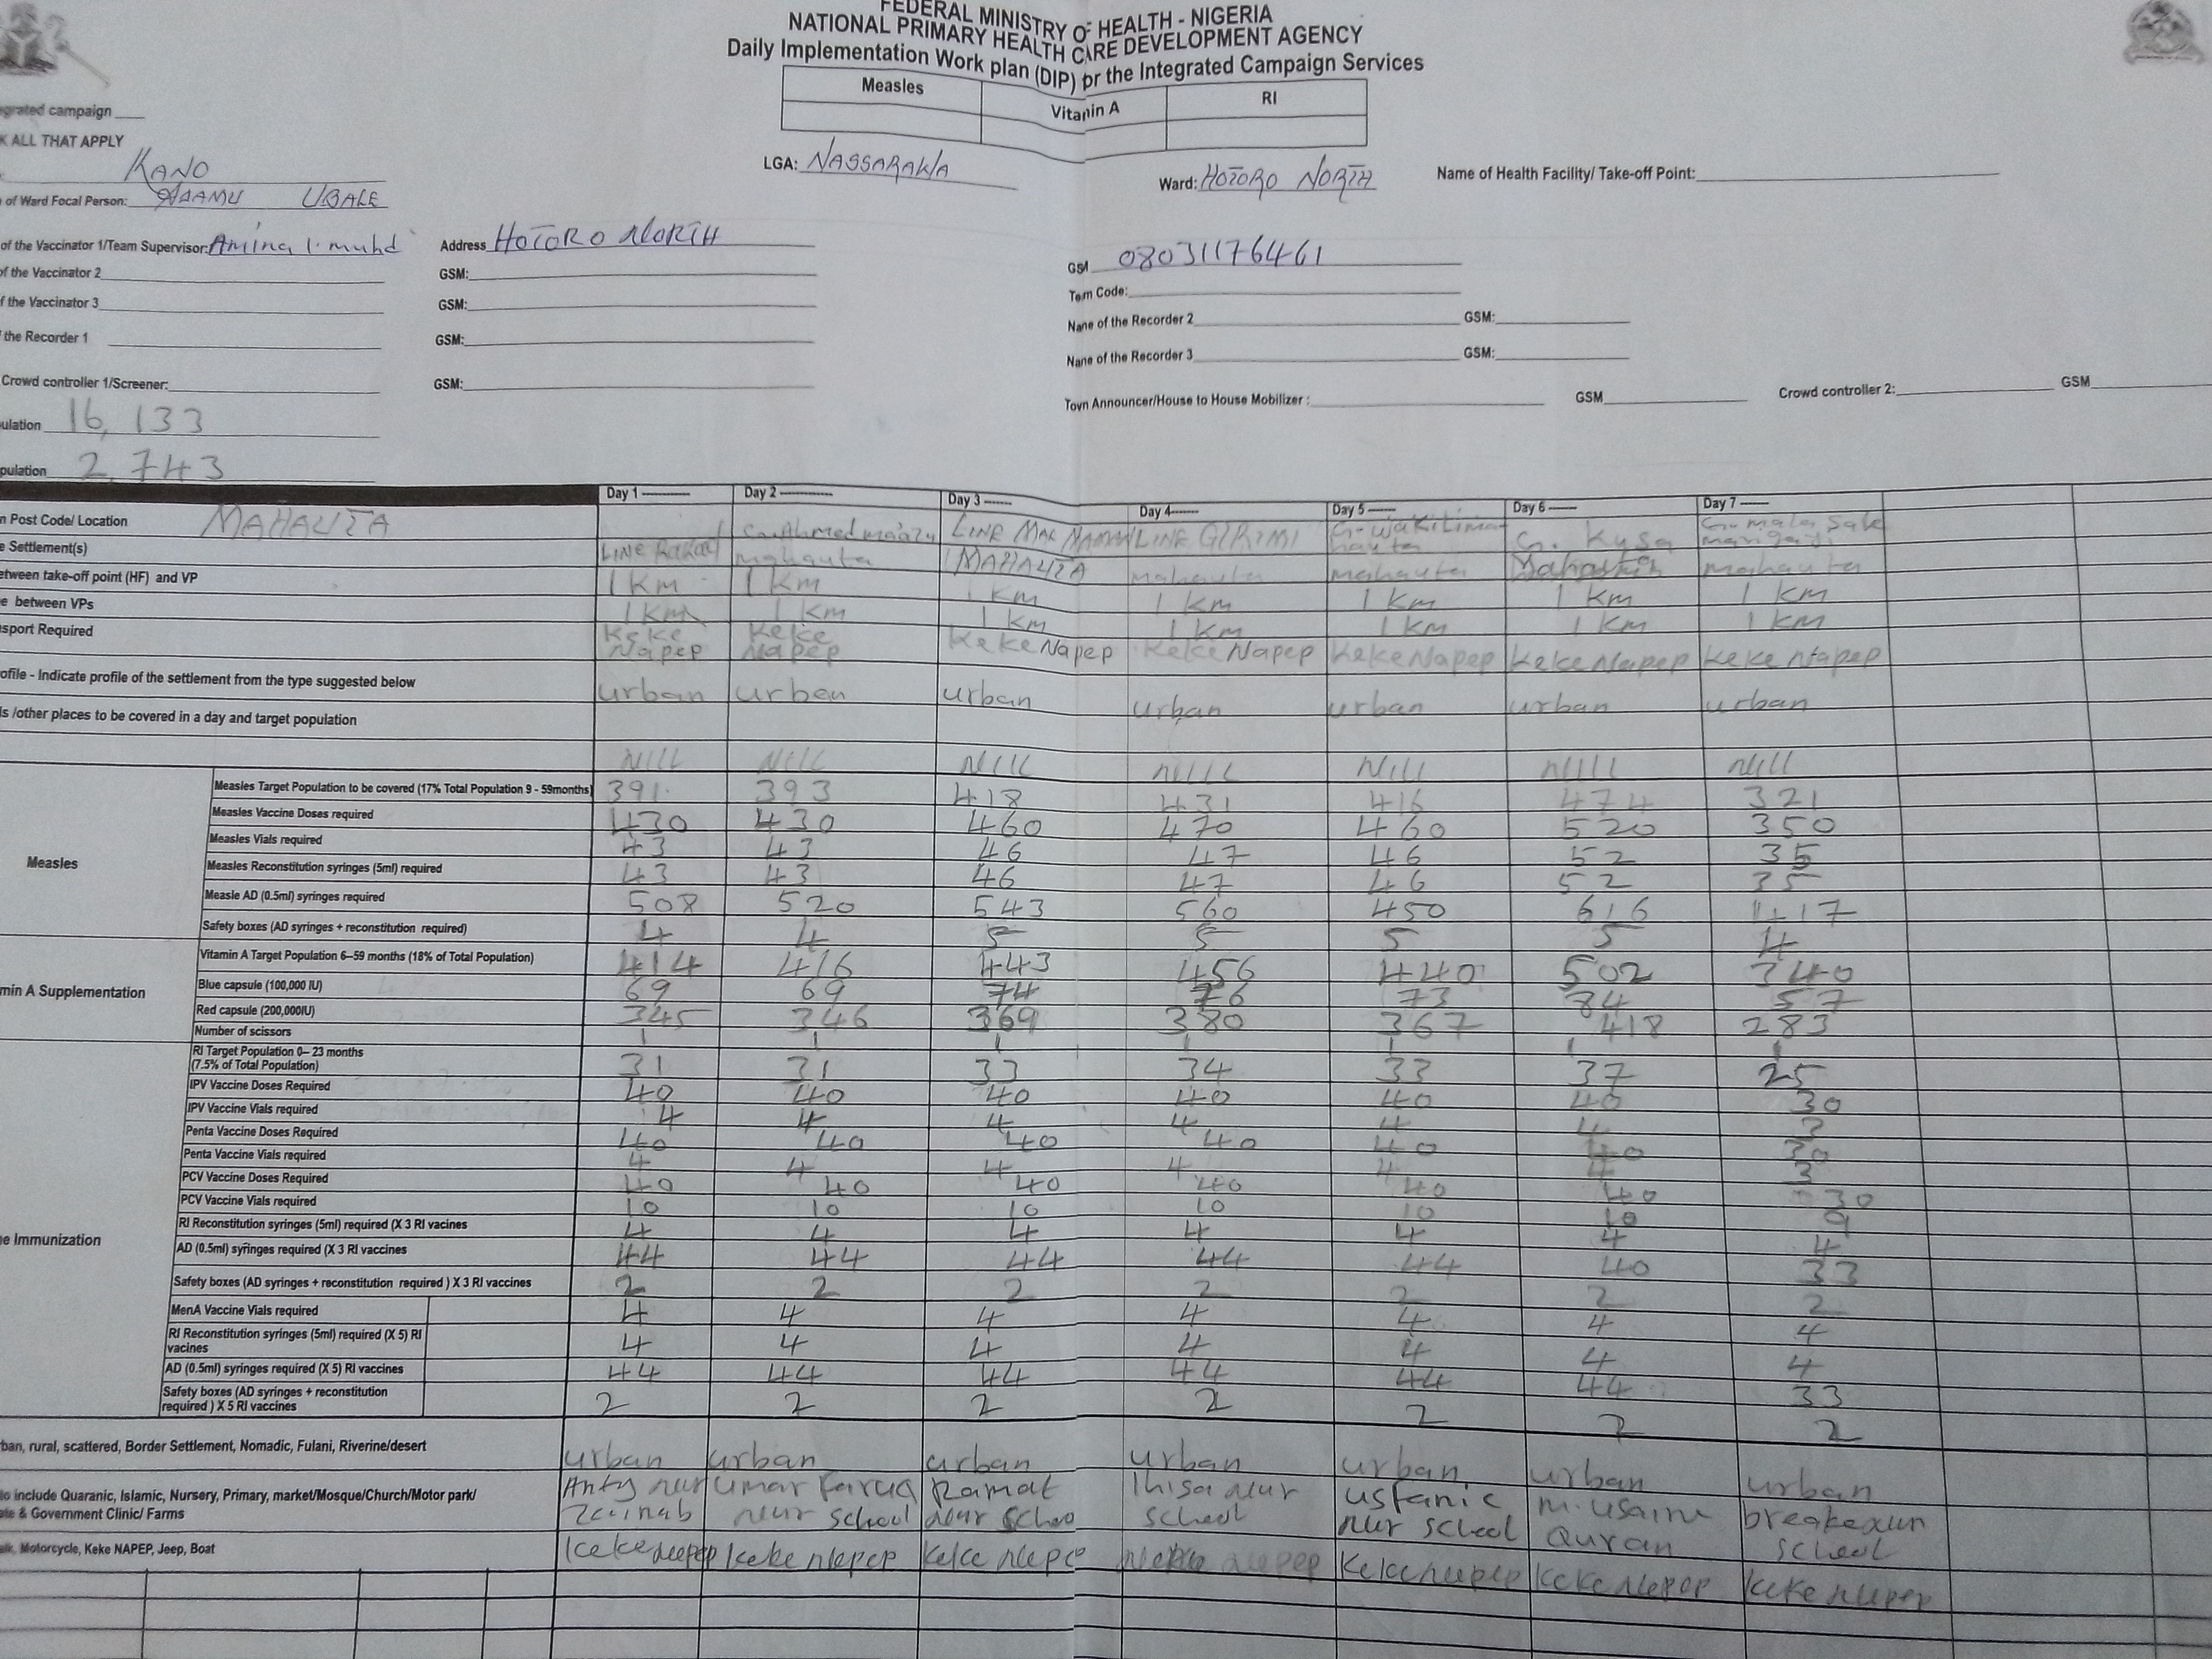 FEDERAL MINISTRY OF HEALTH - NIGERIA
NATIONAL PRIMARY HEALTH CARE DEVELOPMENT AGENCY
Daily Implementation Work plan (DIP) or the Integrated Campaign Services
Measles Vitamin A RI
grated campaign
K ALL THAT APPLY
KANO LGA: NASSARAWA Ward: HOTORO NORTH Name of Health Facility/ Take-off Point:
of Ward Focal Person: ADAMU UBALE
of the Vaccinator 1/Team Supervisor: Amina I. muhd Address HOTORO NORTH GSM 08031176461
of the Vaccinator 2 GSM: Team Code:
f the Vaccinator 3 GSM: Name of the Recorder 2 GSM:
the Recorder 1 GSM: Name of the Recorder 3 GSM:
Crowd controller 1/Screener: GSM: Town Announcer/House to House Mobilizer : GSM Crowd controller 2: GSM
ulation 16,133
pulation 2,743
Day 1 Day 2 Day 3 Day 4 Day 5 Day 6 Day 7
n Post Code/ Location MAHAUTA G. Ahmed LINE MAL NAMAN LINE GIRIMI G. Wakili G. Kusa G. mala Sale
e Settlement(s) LINE mahauta MAHAUTA mahauta mahauta mahauta
etween take-off point (HF) and VP 1 Km 1 Km 1 Km 1 Km 1 Km 1 Km 1 Km
e between VPs 1 Km 1 Km 1 Km 1 Km 1 Km 1 Km 1 Km
sport Required Keke Napep Keke Napep Keke Napep Keke Napep Keke Napep Keke Napep Keke Napep
ofile - Indicate profile of the settlement from the type suggested below urban urban urban urban urban urban urban
ls /other places to be covered in a day and target population
Nill Nill Nill Nill Nill Nill Nill
Measles
Measles Target Population to be covered (17% Total Population 9 - 59months) 391 393 418 431 416 474 321
Measles Vaccine Doses required 430 430 460 470 460 520 350
Measles Vials required 43 43 46 47 46 52 35
Measles Reconstitution syringes (5ml) required 43 43 46 47 46 52 35
Measle AD (0.5ml) syringes required 508 520 543 560 450 616 417
Safety boxes (AD syringes + reconstitution required) 4 4 5 5 5 5 4
min A Supplementation
Vitamin A Target Population 6–59 months (18% of Total Population) 414 416 443 456 440 502 340
Blue capsule (100,000 IU) 69 69 74 76 73 84 57
Red capsule (200,000IU) 345 346 369 380 367 418 283
Number of scissors 1 1 1 1 1 1 1
e Immunization
RI Target Population 0– 23 months (7.5% of Total Population) 31 31 33 34 33 37 25
IPV Vaccine Doses Required 40 40 40 40 40 40 30
IPV Vaccine Vials required 4 4 4 4 4 4 3
Penta Vaccine Doses Required 40 40 40 40 40 40 30
Penta Vaccine Vials required 4 4 4 4 4 4 3
PCV Vaccine Doses Required 40 40 40 40 40 40 30
PCV Vaccine Vials required 10 10 10 10 10 10 9
RI Reconstitution syringes (5ml) required (X 3 RI vacines 4 4 4 4 4 4 4
AD (0.5ml) syringes required (X 3 RI vaccines 44 44 44 44 44 40 33
Safety boxes (AD syringes + reconstitution required ) X 3 RI vaccines 2 2 2 2 2 2 2
MenA Vaccine Vials required 4 4 4 4 4 4 4
RI Reconstitution syringes (5ml) required (X 5) RI vacines 4 4 4 4 4 4 4
AD (0.5ml) syringes required (X 5) RI vaccines 44 44 44 44 44 44 33
Safety boxes (AD syringes + reconstitution required ) X 5 RI vaccines 2 2 2 2 2 2 2
ban, rural, scattered, Border Settlement, Nomadic, Fulani, Riverine/desert urban urban urban urban urban urban urban
to include Quaranic, Islamic, Nursery, Primary, market/Mosque/Church/Motor park/ Anty nur Umar Faruq Ramat nur usfanic m. usaini
ate & Government Clinic/ Farms Zainab nur school nur schoo school nur school Quran school
alk, Motorcycle, Keke NAPEP, Jeep, Boat Keke nepep Keke nepep Keke nepe nepep Keke nepep Keke nepep Keke nepep